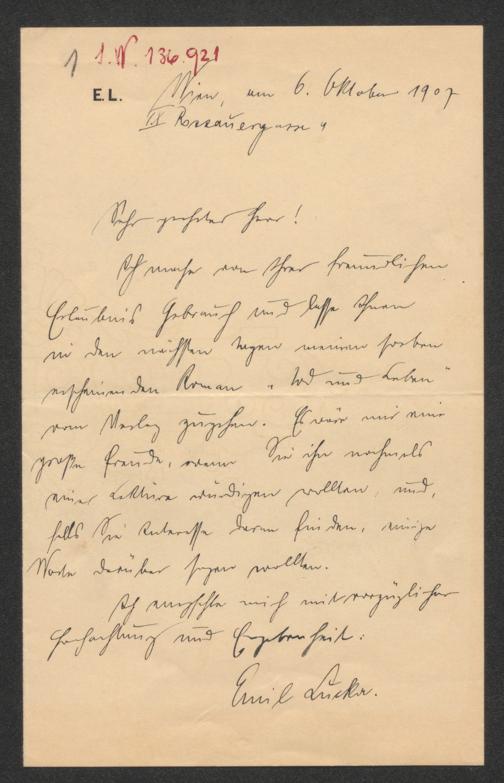 1 I.N. 136.921
E. L. Wien, am 6. Oktober 1907
IX Rossauergasse 4
Sehr geehrter Herr!
Ich mache von Ihrer freundlichen
Erlaubnis Gebrauch und lasse Ihnen
in den nächsten Tagen meinen soeben
erscheinenden Roman „Tod und Leben"
vom Verlag zugehen. Es wäre mir eine
große Freude, wenn Sie ihn nochmals
einer Lektüre würdigen wollten, und,
falls Sie Interesse daran finden, einige
Worte darüber sagen wollten.
Ich empfehle mich mit vorzüglicher
Hochachtung und Ergebenheit:
Emil Lucka.